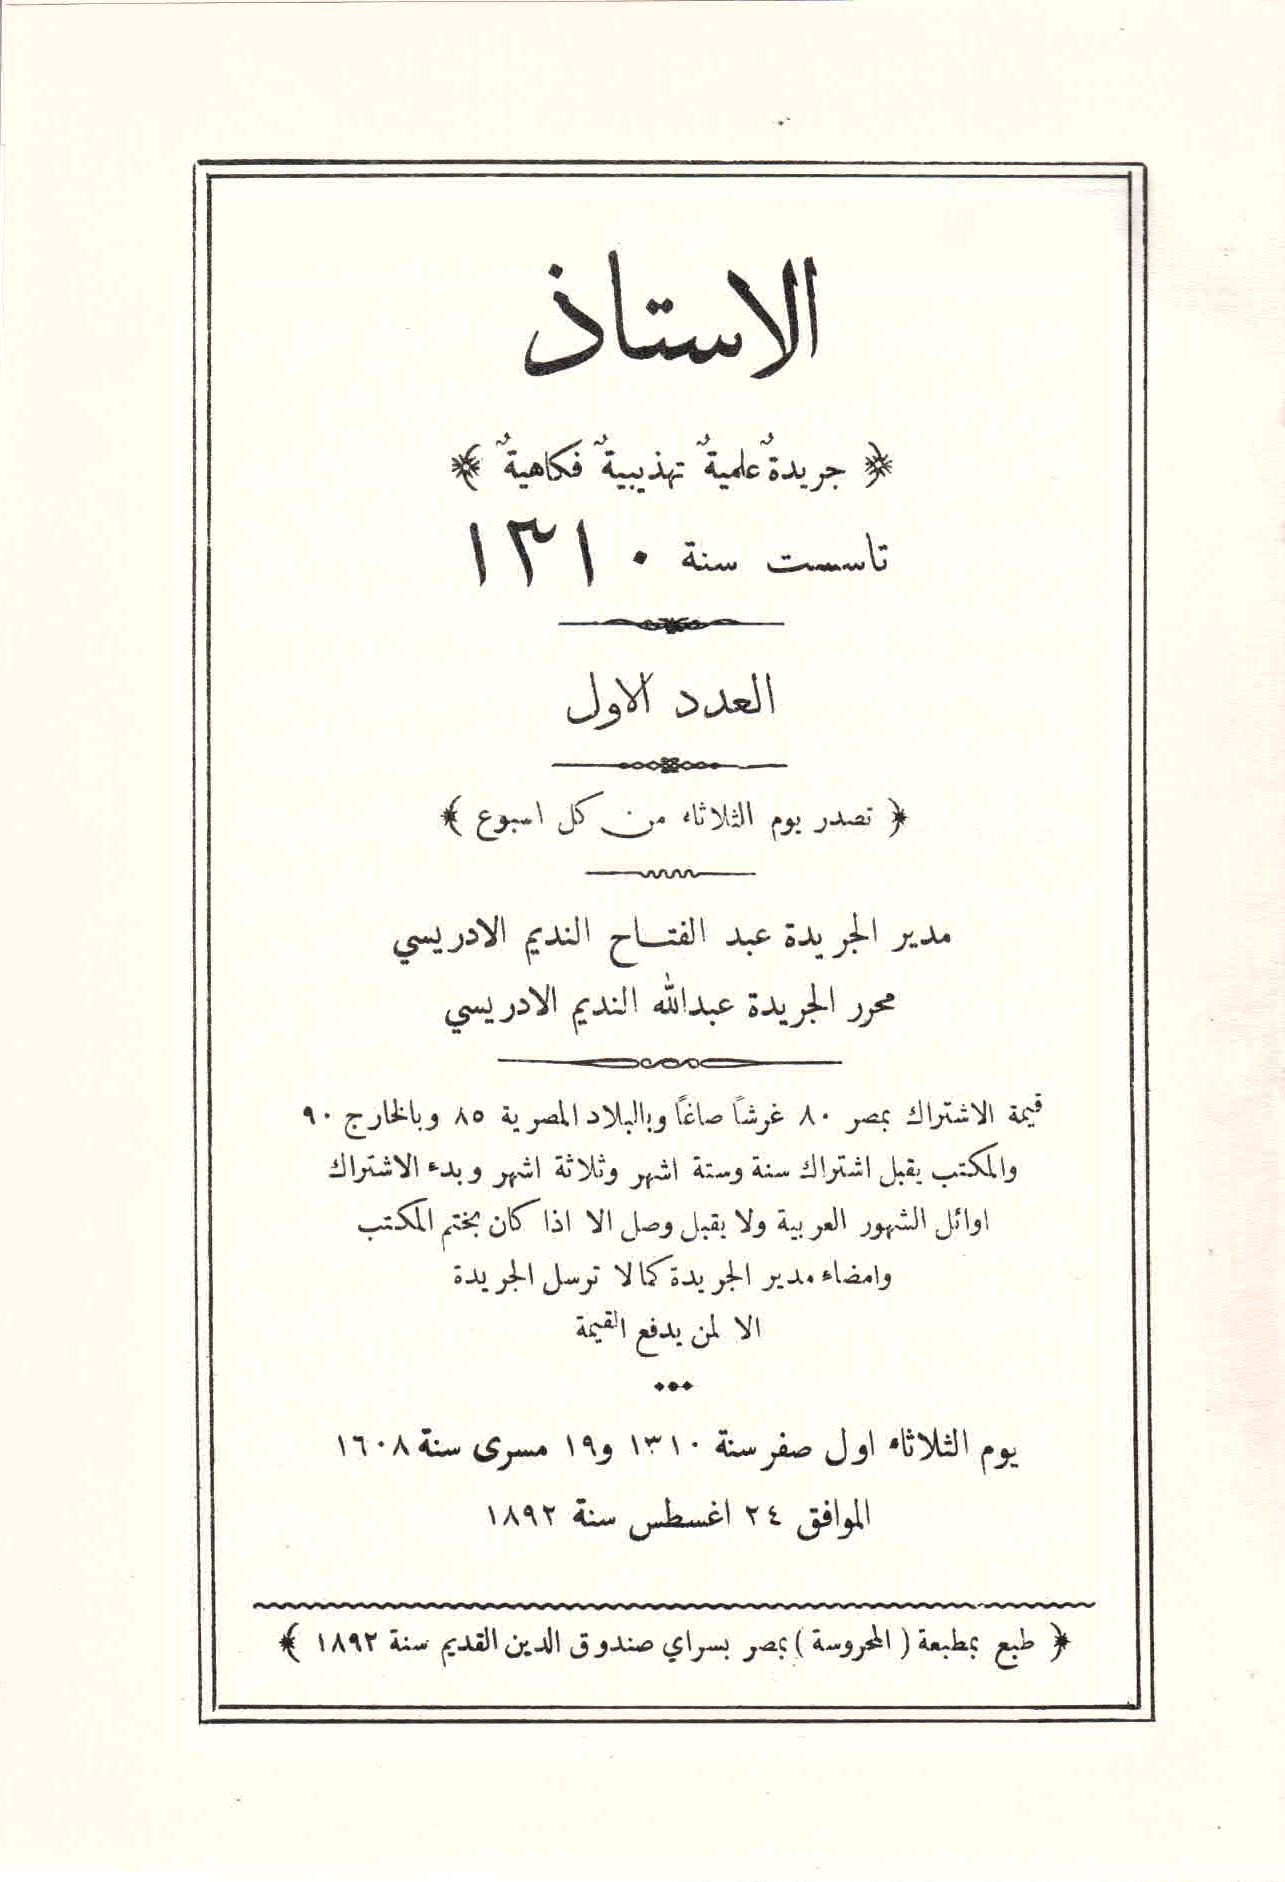 الاستاذ
﴿ جريدةٌ علميةٌ تهذيبيةٌ فكاهيةٌ ﴾
تاسست سنة ١٣١٠
العدد الاول
﴿ تصدر يوم الثلاثاء من كل اسبوع ﴾
مدير الجريدة عبد الفتـاح النديم الادريسي
محرر الجريدة عبدالله النديم الادريسي
قيمة الاشتراك بمصر ٨٠ غرشاً صاغاً وبالبلاد المصرية ٨٥ وبالخارج ٩٠
والمكتب يقبل اشتراك سنة وستة اشهر وثلاثة اشهر وبدء الاشتراك
اوائل الشهور العربية ولا يقبل وصل الا اذا كان بختم المكتب
وامضاء مدير الجريدة كمالا ترسل الجريدة
الا لمن يدفع القيمة
يوم الثلاثاء اول صفر سنة ١٣١٠ و١٩ مسرى سنة ١٦٠٨
الموافق ٢٤ اغسطس سنة ١٨٩٢
﴿ طبع بمطبعة ( المحروسة ) بمصر بسراي صندوق الدين القديم سنة ١٨٩٢ ﴾